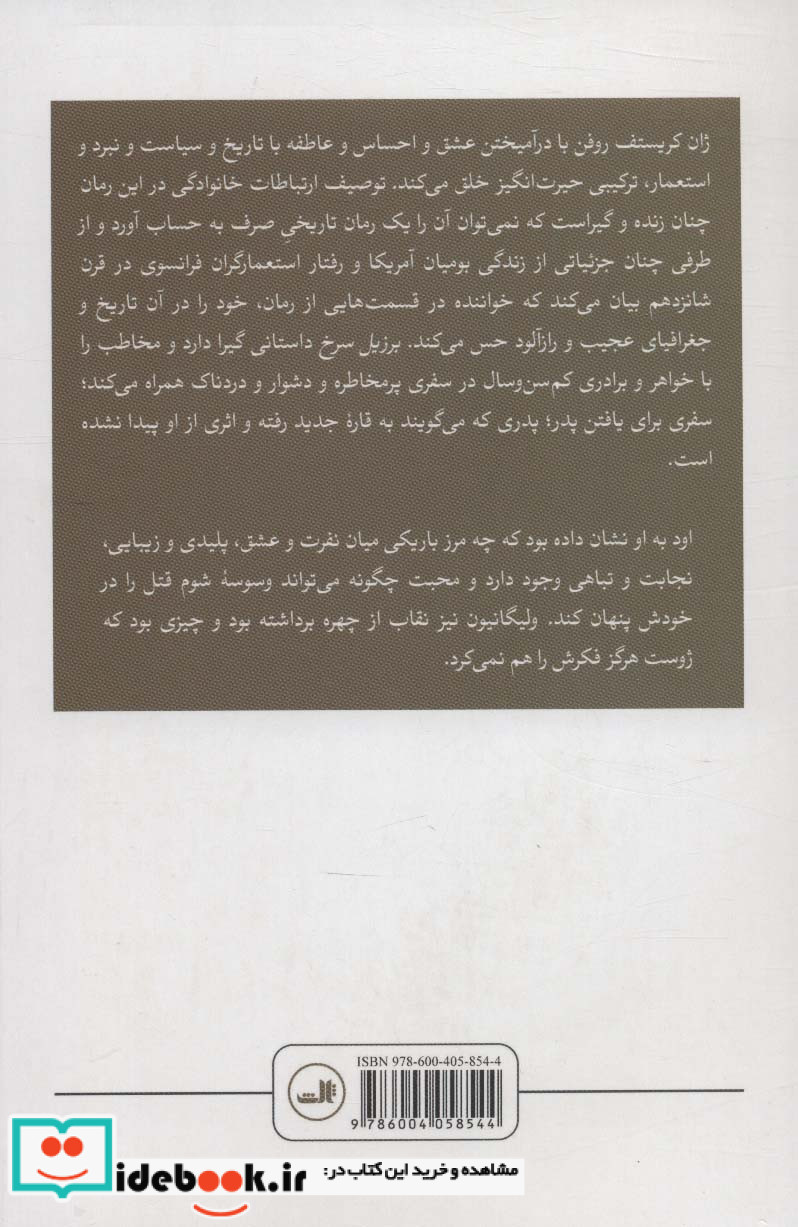 ژان کریستف روفن با درآمیختن عشق و احساس و عاطفه با تاریخ و سیاست و نبرد و
استعمار، ترکیبی حیرت‌انگیز خلق می‌کند. توصیف ارتباطات خانوادگی در این رمان
چنان زنده و گیراست که نمی‌توان آن را یک رمان تاریخیِ صرف به حساب آورد و از
طرفی چنان جزئیاتی از زندگی بومیان آمریکا و رفتار استعمارگران فرانسوی در قرن
شانزدهم بیان می‌کند که خواننده در قسمت‌هایی از رمان، خود را در آن تاریخ و
جغرافیای عجیب و رازآلود حس می‌کند. برزیل سرخ داستانی گیرا دارد و مخاطب را
با خواهر و برادری کم‌سن‌وسال در سفری پرمخاطره و دشوار و دردناک همراه می‌کند؛
سفری برای یافتن پدر؛ پدری که می‌گویند به قارهٔ جدید رفته و اثری از او پیدا نشده
است.
اود به او نشان داده بود که چه مرز باریکی میان نفرت و عشق، پلیدی و زیبایی،
نجابت و تباهی وجود دارد و محبت چگونه می‌تواند وسوسهٔ شوم قتل را در
خودش پنهان کند. ولیگانیون نیز نقاب از چهره برداشته بود و چیزی بود که
ژوست هرگز فکرش را هم نمی‌کرد.
ISBN 978-600-405-854-4
ثالث
9 786004 058544
مشاهده و خرید این کتاب در:
idebook.ir